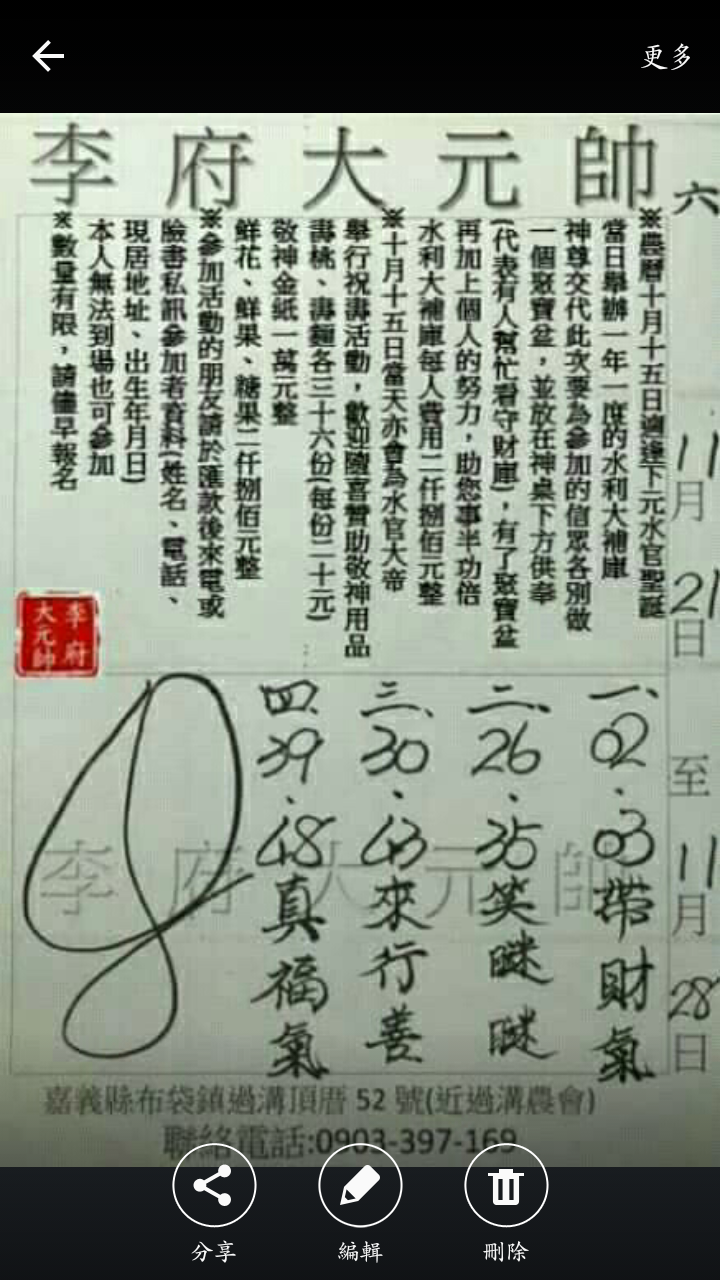 更多
李府大元帥
六
11月21日至11月28日
※農曆十月十五日適逢下元水官聖誕
當日舉辦一年一度的水利大補庫
神尊交代此次要為參加的信眾各別做
一個聚寶盆，並放在神桌下方供奉
(代表有人幫忙看守財庫)，有了聚寶盆
再加上個人的努力，助您事半功倍
水利大補庫每人費用二仟捌佰元整
※十月十五日當天亦會為水官大帝
舉行祝壽活動，歡迎隨喜贊助敬神用品
壽桃、壽麵各三十六份(每份二十元)
敬神金紙一萬元整
鮮花、鮮果、糖果二仟捌佰元整
※參加活動的朋友請於匯款後來電或
臉書私訊參加者資料(姓名、電話、
現居地址、出生年月日)
本人無法到場也可參加
※數量有限，請儘早報名
李府大元帥
一、02.03帶財氣
二、26.35笑瞇瞇
三、30.43來行善
四、39.48真福氣
李府大元帥
嘉義縣布袋鎮過溝頂厝 52 號(近過溝農會)
聯絡電話:0903-397-169
分享
編輯
刪除